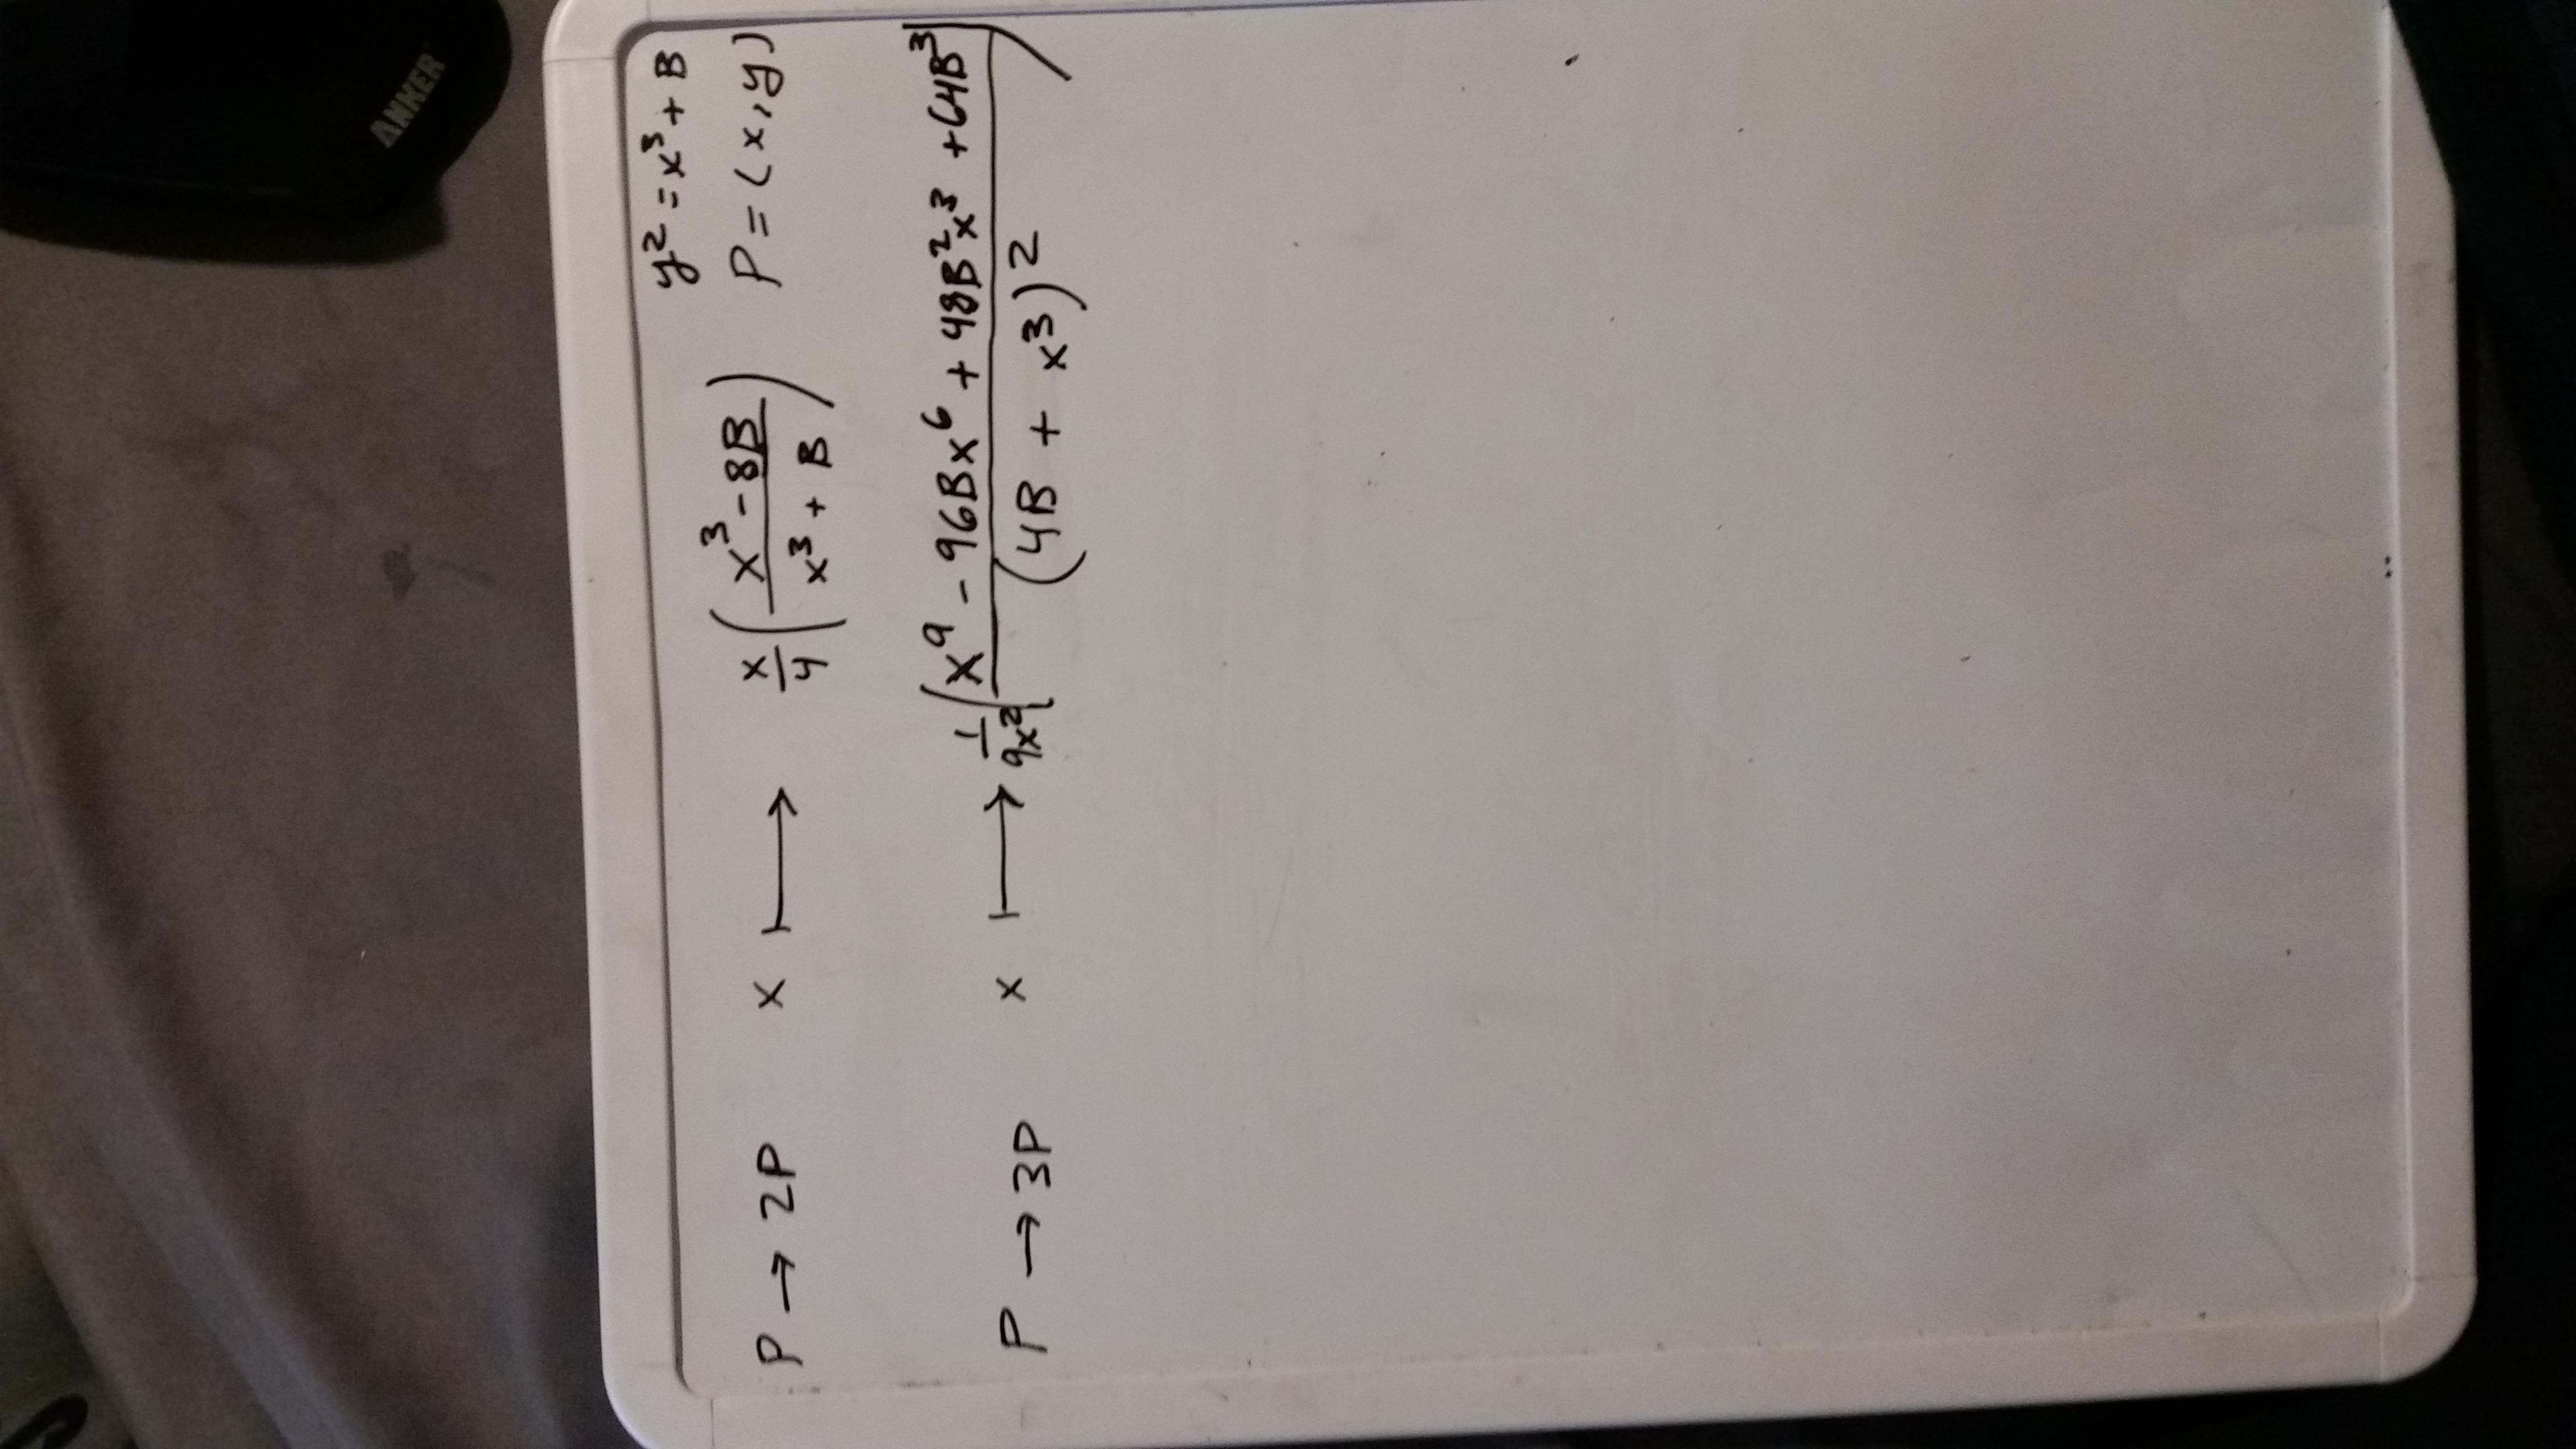 ANKER
y² = x³ + B
P → 2P x ⟼ x/4 ( (x³ - 8B) / (x³ + B) ) P = (x, y)
P → 3P x ⟼ 1/(9x²) ( (x⁹ - 96Bx⁶ + 48B²x³ + 64B³) / (4B + x³)² )